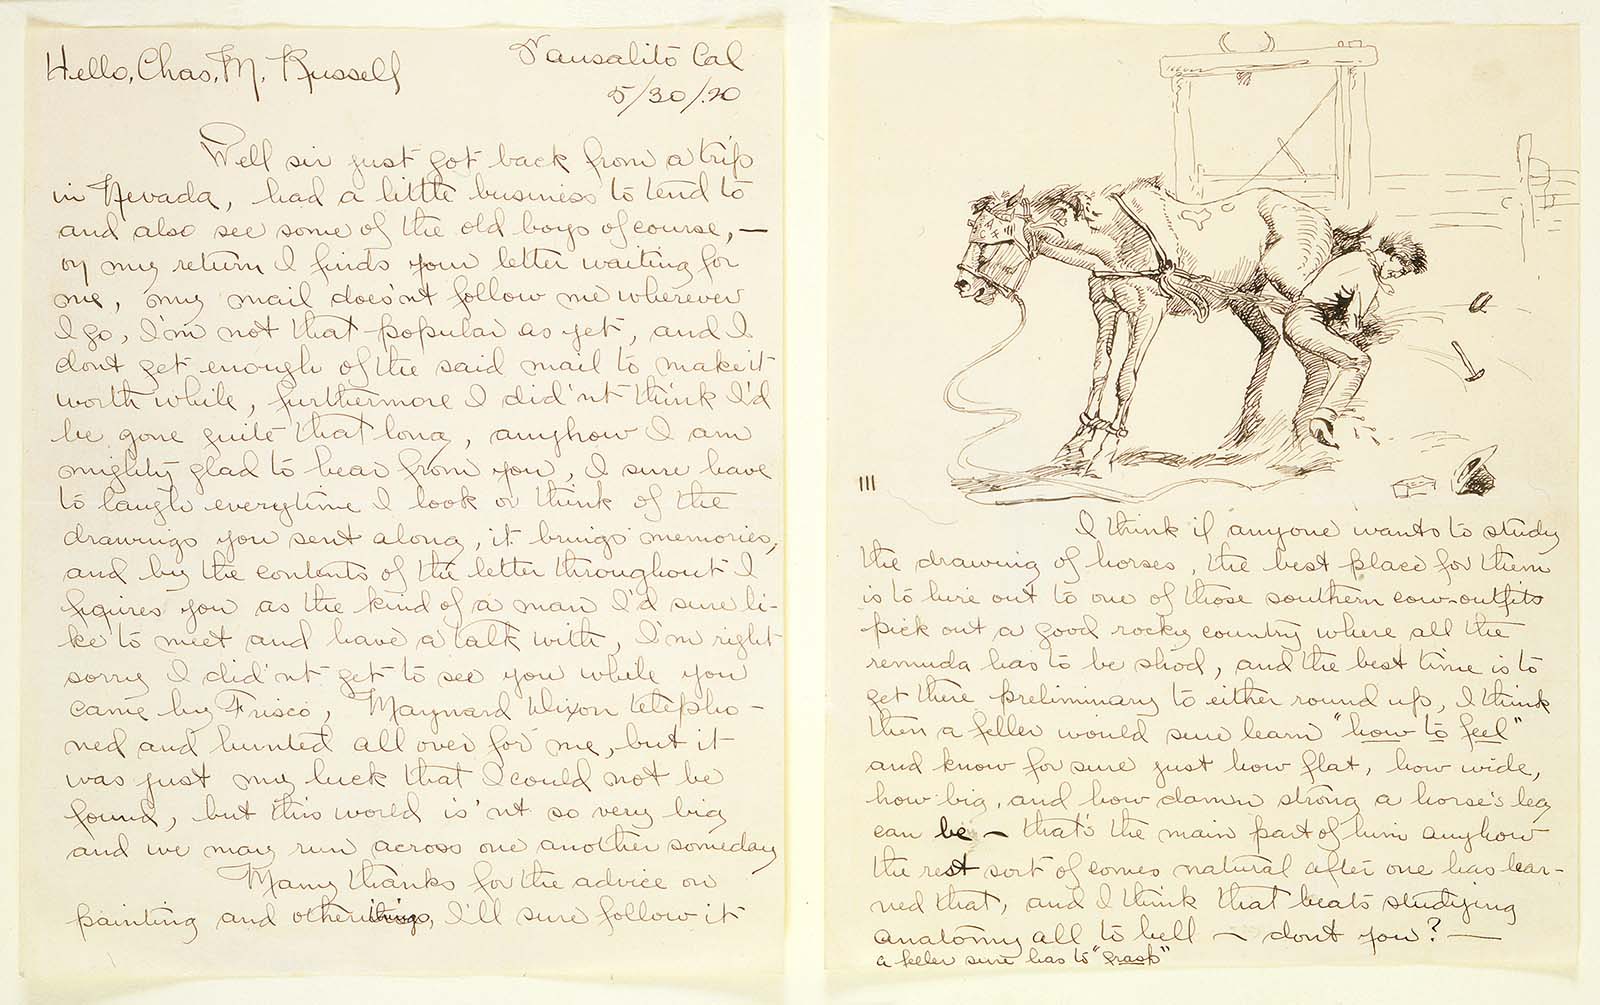 Hello, Chas. M. Russell
Sausalito Cal
5/30/.20
Well sir just got back from a trip
in Nevada, had a little business to tend to
and also see some of the old boys of course, —
on my return I finds your letter waiting for
me, my mail does'nt follow me wherever
I go, I'm not that popular as yet, and I
dont get enough of the said mail to make it
worth while, furthermore I did'nt think I'd
be gone quite that long, anyhow I am
mighty glad to hear from you, I sure have
to laugh everytime I look or think of the
drawings you sent along, it brings memories,
and by the contents of the letter throughout I
figures you as the kind of a man I'd sure li-
ke to meet and have a talk with, I'm right
sorry I did'nt get to see you while you
came by Frisco, Maynard Dixon telepho-
ned and hunted all over for me, but it
was just my luck that I could not be
found, but this world is'nt so very big
and we may run across one another someday
Many thanks for the advice on
painting and other things, I'll sure follow it
III
I think if anyone wants to study
the drawing of horses, the best place for them
is to hire out to one of those southern cow-outfits
pick out a good rocky country where all the
remuda has to be shod, and the best time is to
get there preliminary to either round up, I think
then a feller would sure learn "how to feel"
and know for sure just how flat, how wide,
how big, and how damn strong a horse's leg
can be — that's the main part of him anyhow
the rest sort of comes natural after one has lear-
ned that, and I think that beats studying
anatomy all to hell — dont you? —
a feller sure has to "grasp"